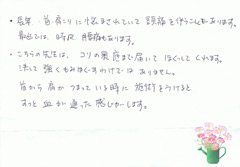 ・長年、首・肩こりに悩まされていて頭痛を伴うこともあります。
最近では、時々 腰痛もあります。
・こちらの先生は、コリの奥底まで届いて ほぐしてくれます。
決して 強くもみほぐすわけでは ありません。
首から肩が つまっている時に 施術をうけると
すっと血が通った感じがします。